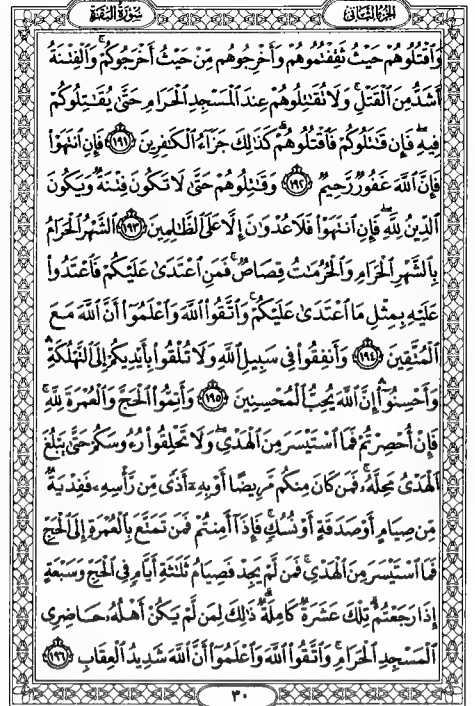 سُورَةُ البَقَرَةِ الجُزءُ الثَّانِي
وَٱقۡتُلُوهُمۡ حَيۡثُ ثَقِفۡتُمُوهُمۡ وَأَخۡرِجُوهُم مِّنۡ حَيۡثُ أَخۡرَجُوكُمۡۚ وَٱلۡفِتۡنَةُ
أَشَدُّ مِنَ ٱلۡقَتۡلِۚ وَلَا تُقَٰتِلُوهُمۡ عِندَ ٱلۡمَسۡجِدِ ٱلۡحَرَامِ حَتَّىٰ يُقَٰتِلُوكُمۡ
فِيهِۖ فَإِن قَٰتَلُوكُمۡ فَٱقۡتُلُوهُمۡۗ كَذَٰلِكَ جَزَآءُ ٱلۡكَٰفِرِينَ ١٩١ فَإِنِ ٱنتَهَوۡاْ
فَإِنَّ ٱللَّهَ غَفُورٞ رَّحِيمٞ ١٩٢ وَقَٰتِلُوهُمۡ حَتَّىٰ لَا تَكُونَ فِتۡنَةٞ وَيَكُونَ
ٱلدِّينُ لِلَّهِۖ فَإِنِ ٱنتَهَوۡاْ فَلَا عُدۡوَٰنَ إِلَّا عَلَى ٱلظَّٰلِمِينَ ١٩٣ ٱلشَّهۡرُ ٱلۡحَرَامُ
بِٱلشَّهۡرِ ٱلۡحَرَامِ وَٱلۡحُرُمَٰتُ قِصَاصٞۚ فَمَنِ ٱعۡتَدَىٰ عَلَيۡكُمۡ فَٱعۡتَدُواْ
عَلَيۡهِ بِمِثۡلِ مَا ٱعۡتَدَىٰ عَلَيۡكُمۡۚ وَٱتَّقُواْ ٱللَّهَ وَٱعۡلَمُوٓاْ أَنَّ ٱللَّهَ مَعَ
ٱلۡمُتَّقِينَ ١٩٤ وَأَنفِقُواْ فِي سَبِيلِ ٱللَّهِ وَلَا تُلۡقُواْ بِأَيۡدِيكُمۡ إِلَى ٱلتَّهۡلُكَةِۛ
وَأَحۡسِنُوٓاْۛ إِنَّ ٱللَّهَ يُحِبُّ ٱلۡمُحۡسِنِينَ ١٩٥ وَأَتِمُّواْ ٱلۡحَجَّ وَٱلۡعُمۡرَةَ لِلَّهِۚ
فَإِنۡ أُحۡصِرۡتُمۡ فَمَا ٱسۡتَيۡسَرَ مِنَ ٱلۡهَدۡيِۖ وَلَا تَحۡلِقُواْ رُءُوسَكُمۡ حَتَّىٰ يَبۡلُغَ
ٱلۡهَدۡيُ مَحِلَّهُۥۚ فَمَن كَانَ مِنكُم مَّرِيضًا أَوۡ بِهِۦٓ أَذٗى مِّن رَّأۡسِهِۦ فَفِدۡيَةٞ
مِّن صِيَامٍ أَوۡ صَدَقَةٍ أَوۡ نُسُكٖۚ فَإِذَآ أَمِنتُمۡ فَمَن تَمَتَّعَ بِٱلۡعُمۡرَةِ إِلَى ٱلۡحَجِّ
فَمَا ٱسۡتَيۡسَرَ مِنَ ٱلۡهَدۡيِۚ فَمَن لَّمۡ يَجِدۡ فَصِيَامُ ثَلَٰثَةِ أَيَّامٖ فِي ٱلۡحَجِّ وَسَبۡعَةٍ
إِذَا رَجَعۡتُمۡۗ تِلۡكَ عَشَرَةٞ كَامِلَةٞۗ ذَٰلِكَ لِمَن لَّمۡ يَكُنۡ أَهۡلُهُۥ حَاضِرِي
ٱلۡمَسۡجِدِ ٱلۡحَرَامِۚ وَٱتَّقُواْ ٱللَّهَ وَٱعۡلَمُوٓاْ أَنَّ ٱللَّهَ شَدِيدُ ٱلۡعِقَابِ ١٩٦
٣٠